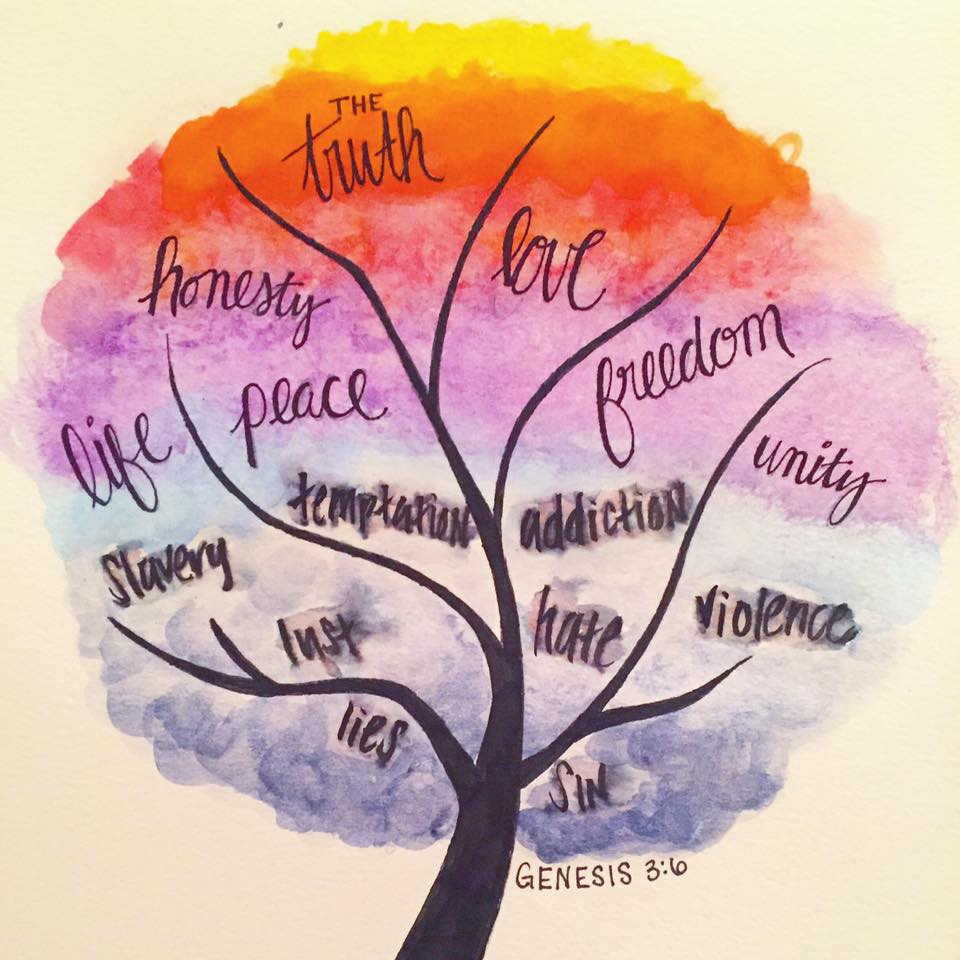 THE
truth
love
honesty
freedom
peace
life
unity
temptation
addiction
slavery
hate
violence
lust
lies
SIN
GENESIS 3:6